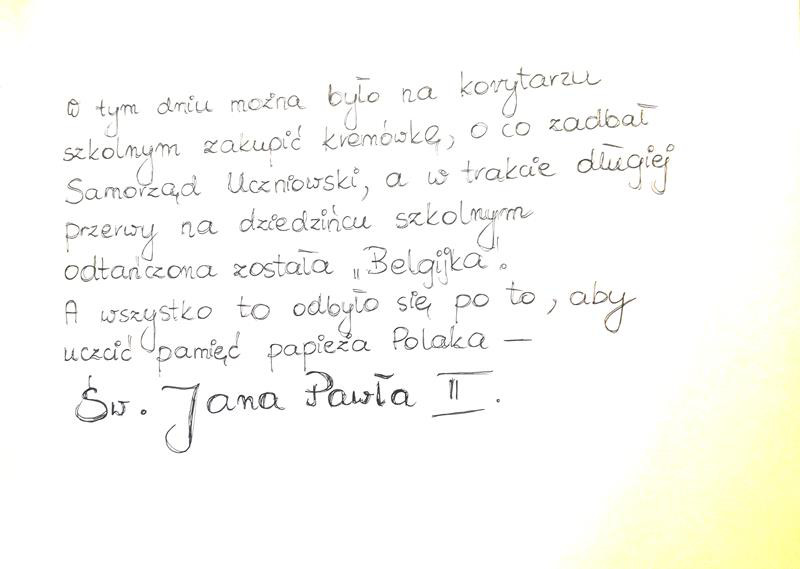 W tym dniu można było na korytarzu
szkolnym zakupić kremówkę, o co zadbał
Samorząd Uczniowski, a w trakcie długiej
przerwy na dziedzińcu szkolnym
odtańczona została „Belgijka".
A wszystko to odbyło się po to, aby
uczcić pamięć papieża Polaka —
Św. Jana Pawła II.